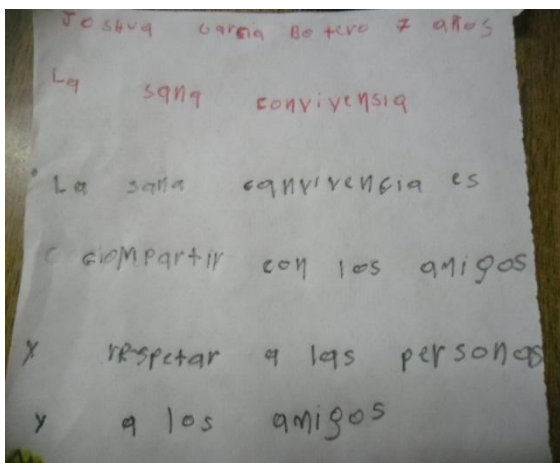 Joshua Garcia Botero 7 años
La sana convivensia
La sana canvivencia es
ciompartir con los amigos
y respetar a las personas
y a los amigos